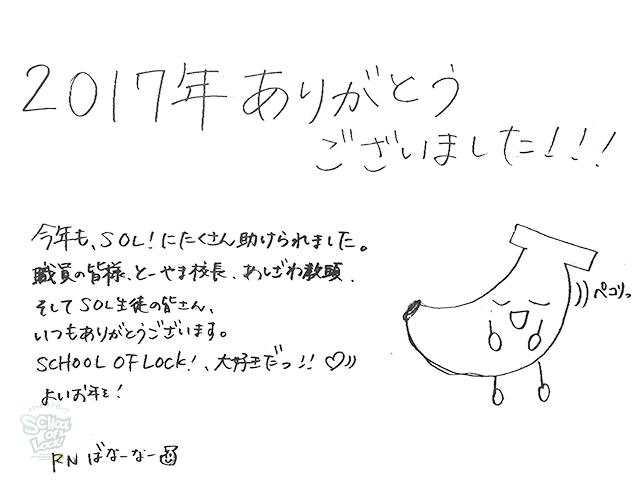 2017年ありがとう
ございました!!!
今年も、SOL!にたくさん助けられました。
職員の皆様、とーやま校長、あしざわ教頭、
そしてSOL生徒の皆さん、
いつもありがとうございます。
SCHOOL OF LOCK!、大好きだっ!!♡))
よいお年を!
RN ばなーなー
ペコリっ
SCHOOL OF LOCK!